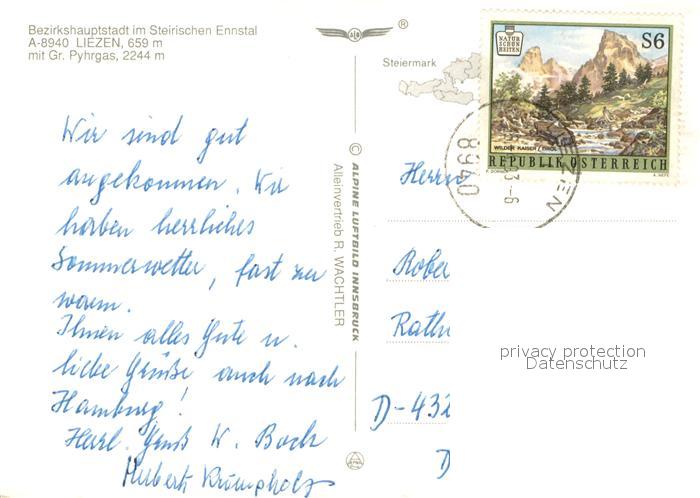 Bezirkshauptstadt im Steirischen Ennstal
A-8940 LIEZEN, 659 m
mit Gr. Pyhrgas, 2244 m
®
Steiermark
NATUR
SCHÖN
HEITEN
S6
WILDER KAISER / TIROL
REPUBLIK ÖSTERREICH
8940
LIEZEN
Wir sind gut
angekommen. Wir
haben herrliches
Sommerwetter, fast zu
warm.
Ihnen alles Gute u.
liebe Grüße auch nach
Hamburg!
Herzl. Gruß W. Bock
Hubert Krömpholz
© ALPINE LUFTBILD INNSBRUCK
Alleinvertrieb R. WACHTLER
Herrn
Rober
Rath
D-432
D
privacy protection
Datenschutz